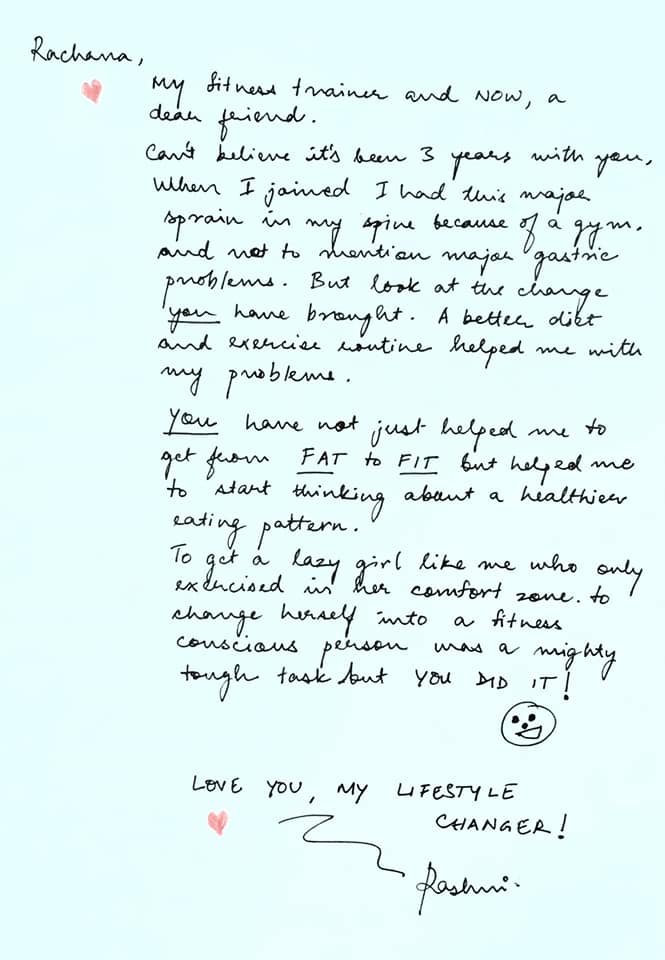 Rachana,
My fitness trainer and NOW, a
dear friend.
Can't believe it's been 3 years with you.
When I joined I had this major
sprain in my spine because of a gym.
and not to mention major gastric
problems. But look at the change
you have brought. A better diet
and exercise routine helped me with
my problems.
You have not just helped me to
get from FAT to FIT but helped me
to start thinking about a healthier
eating pattern.
To get a lazy girl like me who only
exercised in her comfort zone. to
change herself into a fitness
conscious person was a mighty
tough task but YOU DID IT!
LOVE YOU, MY LIFESTYLE
CHANGER!
Rashmi.